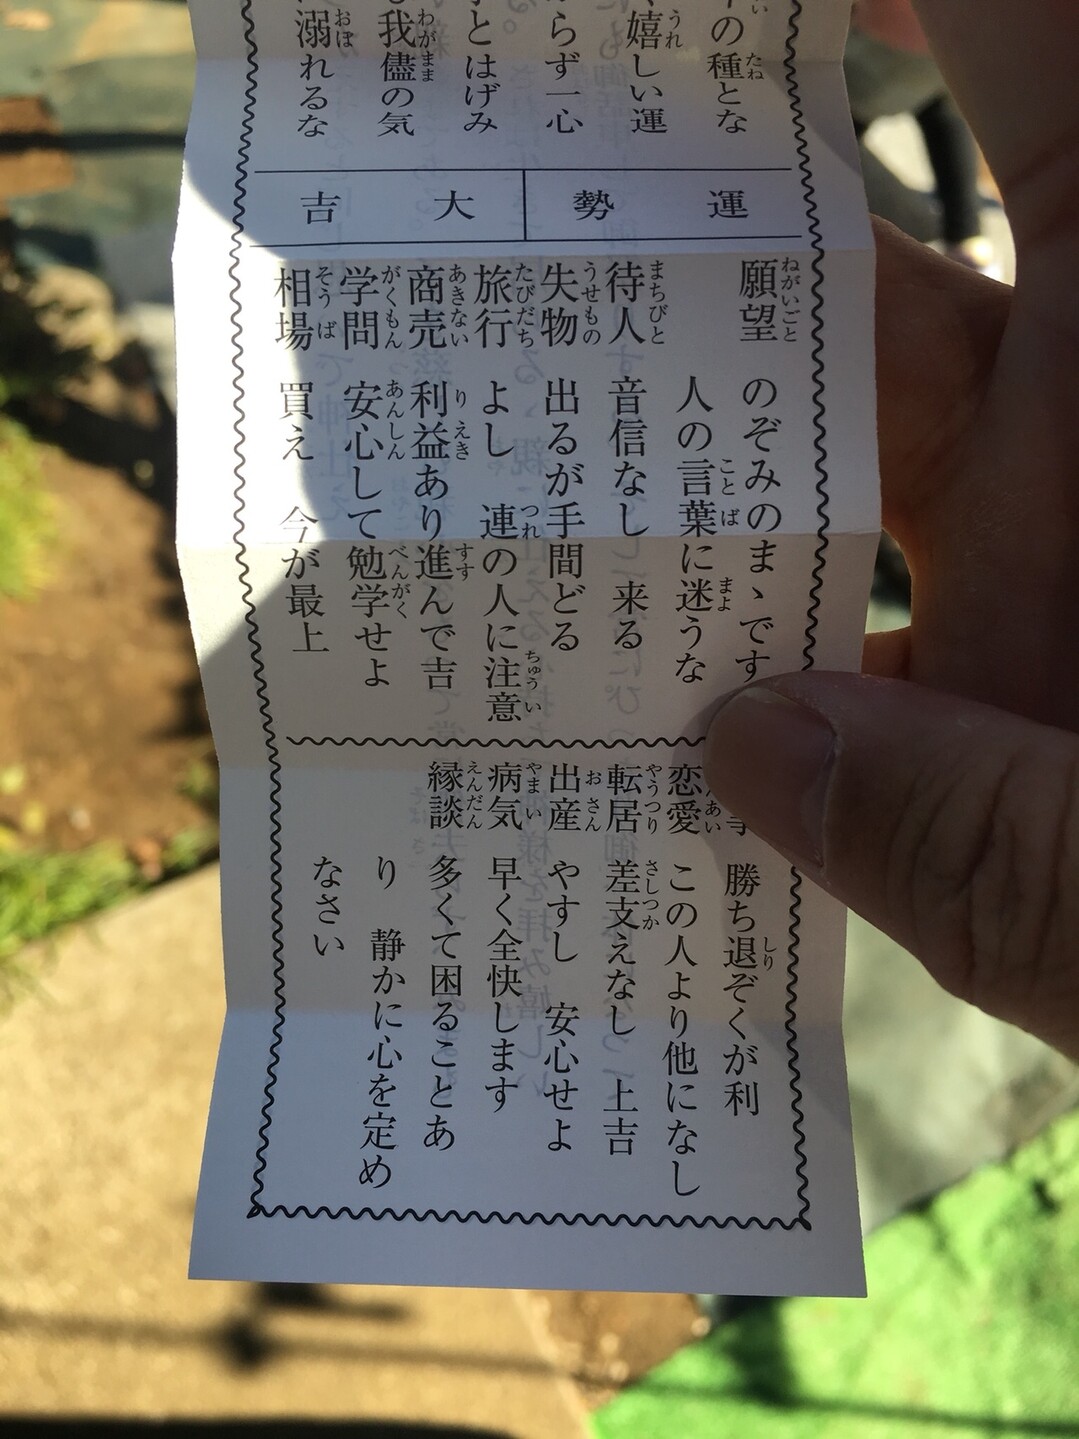 の種とな
嬉しい運
らず一心
とはげみ
我儘の気
溺れるな
運勢 大吉
願望 のぞみのまゝです
人の言葉に迷うな
待人 音信なし 来る
失物 出るが手間どる
旅行 よし 連の人に注意
商売 利益あり進んで吉
学問 安心して勉学せよ
相場 買え 今が最上
勝ち退ぞくが利
恋愛 この人より他になし
転居 差支えなし 上吉
出産 やすし 安心せよ
病気 早く全快します
縁談 多くて困ることあ
り 静かに心を定め
なさい